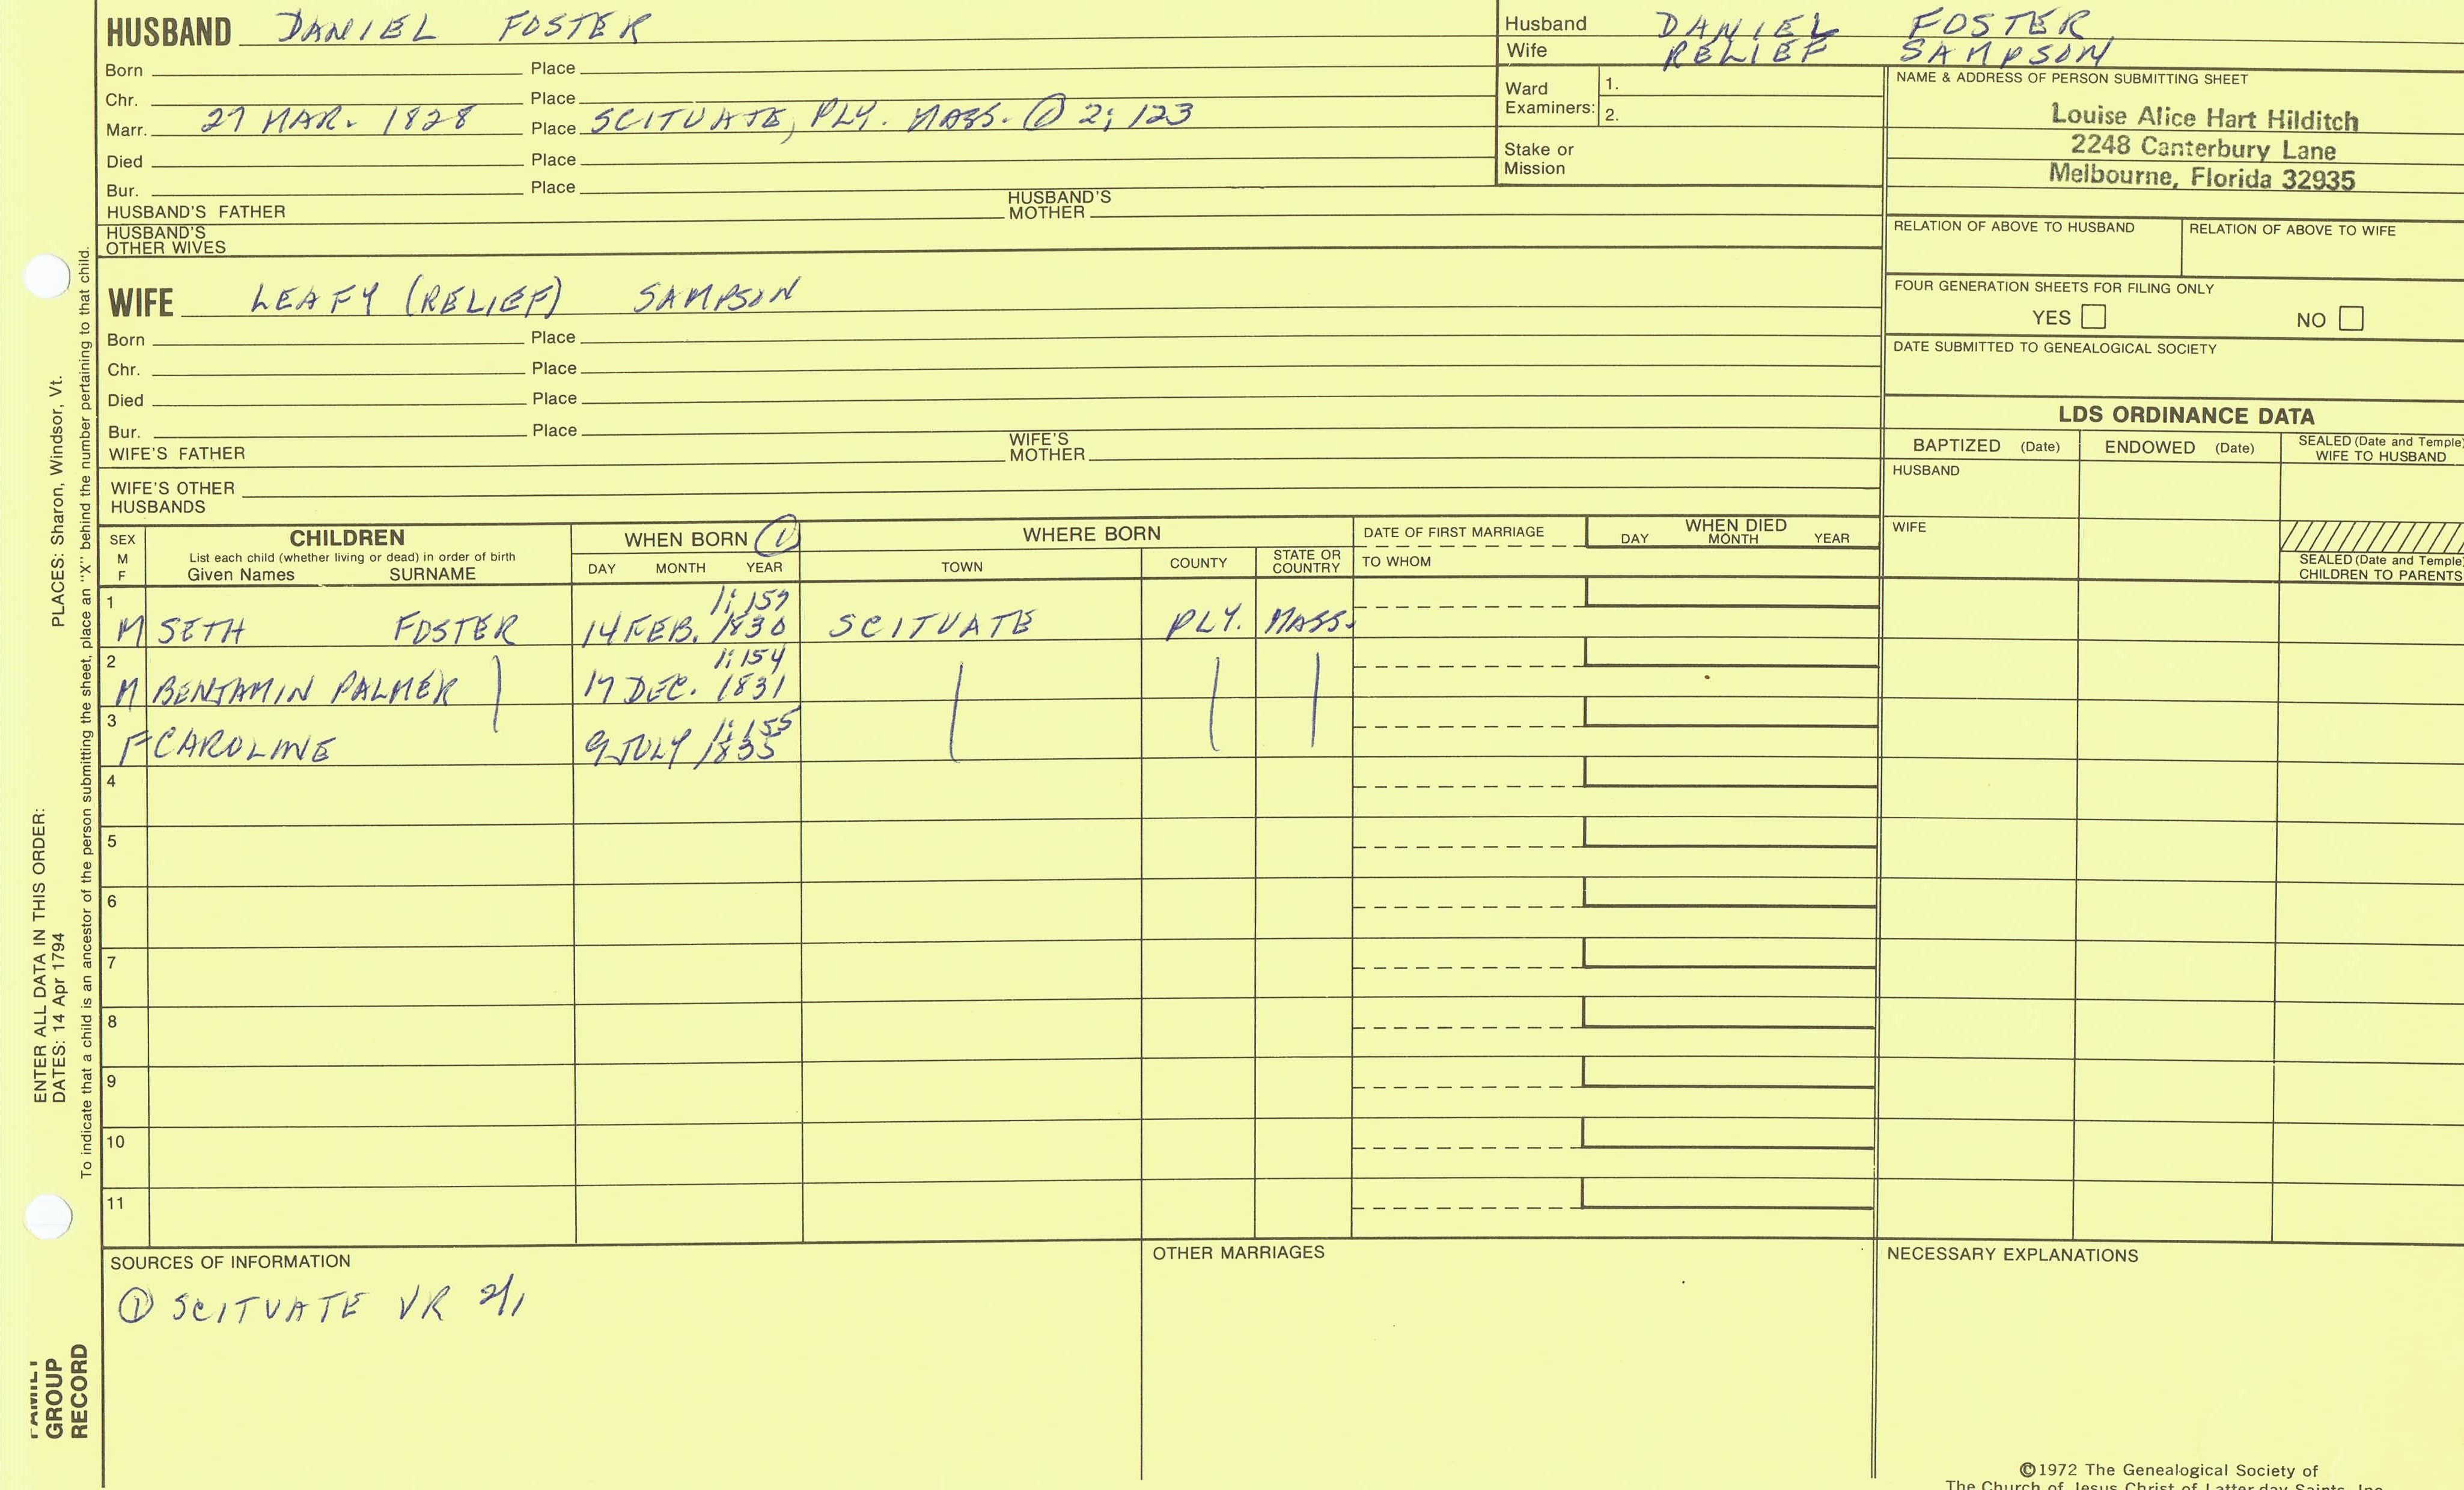 HUSBAND DANIEL FOSTER
Born Place
Chr. Place
Marr. 27 MAR. 1828 Place SCITUATE, PLY. MASS. ① 2; 123
Died Place
Bur. Place
HUSBAND'S FATHER HUSBAND'S MOTHER
HUSBAND'S OTHER WIVES
Husband DANIEL FOSTER
Wife RELIEF SAMPSON
Ward Examiners: 1.
2.
Stake or Mission
NAME & ADDRESS OF PERSON SUBMITTING SHEET
Louise Alice Hart Hilditch
2248 Canterbury Lane
Melbourne, Florida 32935
RELATION OF ABOVE TO HUSBAND RELATION OF ABOVE TO WIFE
FOUR GENERATION SHEETS FOR FILING ONLY
YES NO
DATE SUBMITTED TO GENEALOGICAL SOCIETY
WIFE LEAFY (RELIEF) SAMPSON
Born Place
Chr. Place
Died Place
Bur. Place
WIFE'S FATHER WIFE'S MOTHER
WIFE'S OTHER HUSBANDS
LDS ORDINANCE DATA
BAPTIZED (Date) ENDOWED (Date) SEALED (Date and Temple) WIFE TO HUSBAND
HUSBAND
WIFE
SEALED (Date and Temple) CHILDREN TO PARENTS
SEX M F
CHILDREN
List each child (whether living or dead) in order of birth
Given Names SURNAME
WHEN BORN ①
DAY MONTH YEAR
WHERE BORN
TOWN COUNTY STATE OR COUNTRY
DATE OF FIRST MARRIAGE
TO WHOM
WHEN DIED
DAY MONTH YEAR
1 1; 157
M SETH FOSTER 14 FEB. 1830 SCITUATE PLY. MASS.
2 1; 154
M BENJAMIN PALMER 17 DEC. 1831
3 1; 155
F CAROLINE 9 JULY 1835
4
5
6
7
8
9
10
11
SOURCES OF INFORMATION
① SCITUATE VR 2/1
OTHER MARRIAGES
NECESSARY EXPLANATIONS
©1972 The Genealogical Society of
The Church of Jesus Christ of Latter-day Saints, Inc.
ENTER ALL DATA IN THIS ORDER:
DATES: 14 Apr 1794 PLACES: Sharon, Windsor, Vt.
To indicate that a child is an ancestor of the person submitting the sheet, place an "X" behind the number pertaining to that child.
FAMILY
GROUP
RECORD